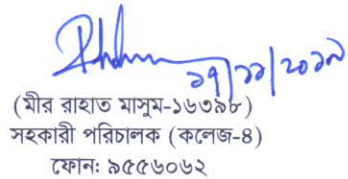 ১৭/১১/২০১৯
(মীর রাহাত মাসুম-১৬৩৯৮)
সহকারী পরিচালক (কলেজ-৪)
ফোন: ৯৫৫৬০৬২